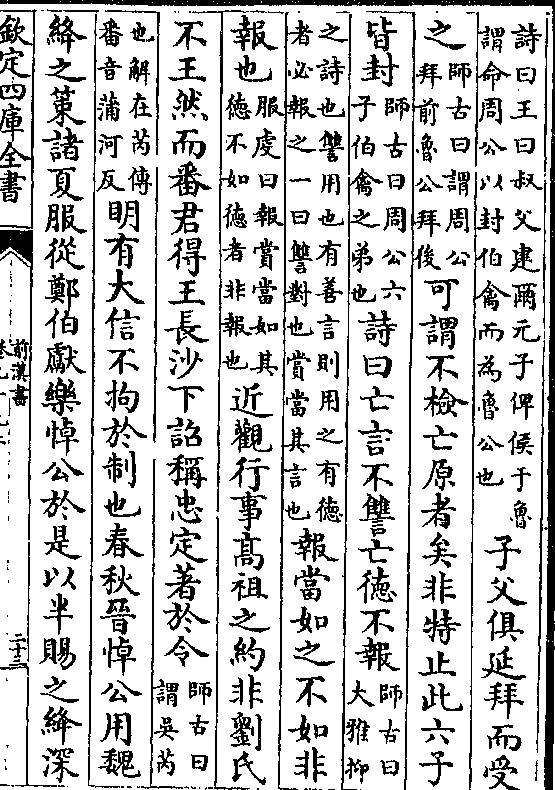 詩曰王曰叔父建爾元子俾侯于魯
謂命周公以封伯禽而為魯公也
子父俱延拜而受
之
師古曰謂周公
拜前魯公拜後
可謂不檢亡原者矣非特止此六子
皆封
師古曰周公六
子伯禽之弟也
詩曰亡言不讐亡德不報
師古曰
大雅抑
之詩也讐用也有善言則用之有德
者必報之一曰讐對也賞當其言也
報當如之不如非
報也
服虔曰報賞當如其
德不如德者非報也
近觀行事高祖之約非劉氏
不王然而番君得王長沙下詔稱忠定著於令
師古曰
謂吳芮
也解在芮傳
番音蒲河反
明有大信不拘於制也春秋晉悼公用魏
絳之策諸夏服從鄭伯獻樂悼公於是以半賜之絳深
欽定四庫全書
前漢書
二十三